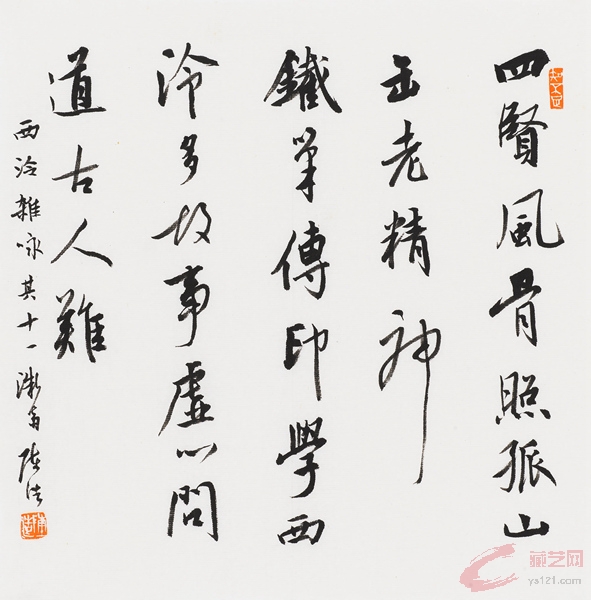 四賢風骨照孤山
缶老精神
鐵筆傳印學西
泠多故事虛心問
道古人難
西泠雜咏其十一
藏艺网
ys121.com